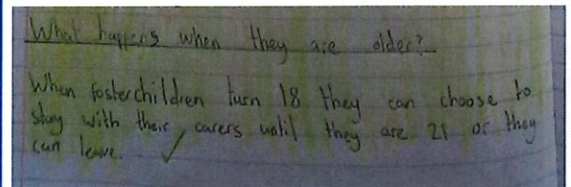 What happens when they are older?
When fosterchildren turn 18 they can choose to
stay with their carers until they are 21 or they
can leave.